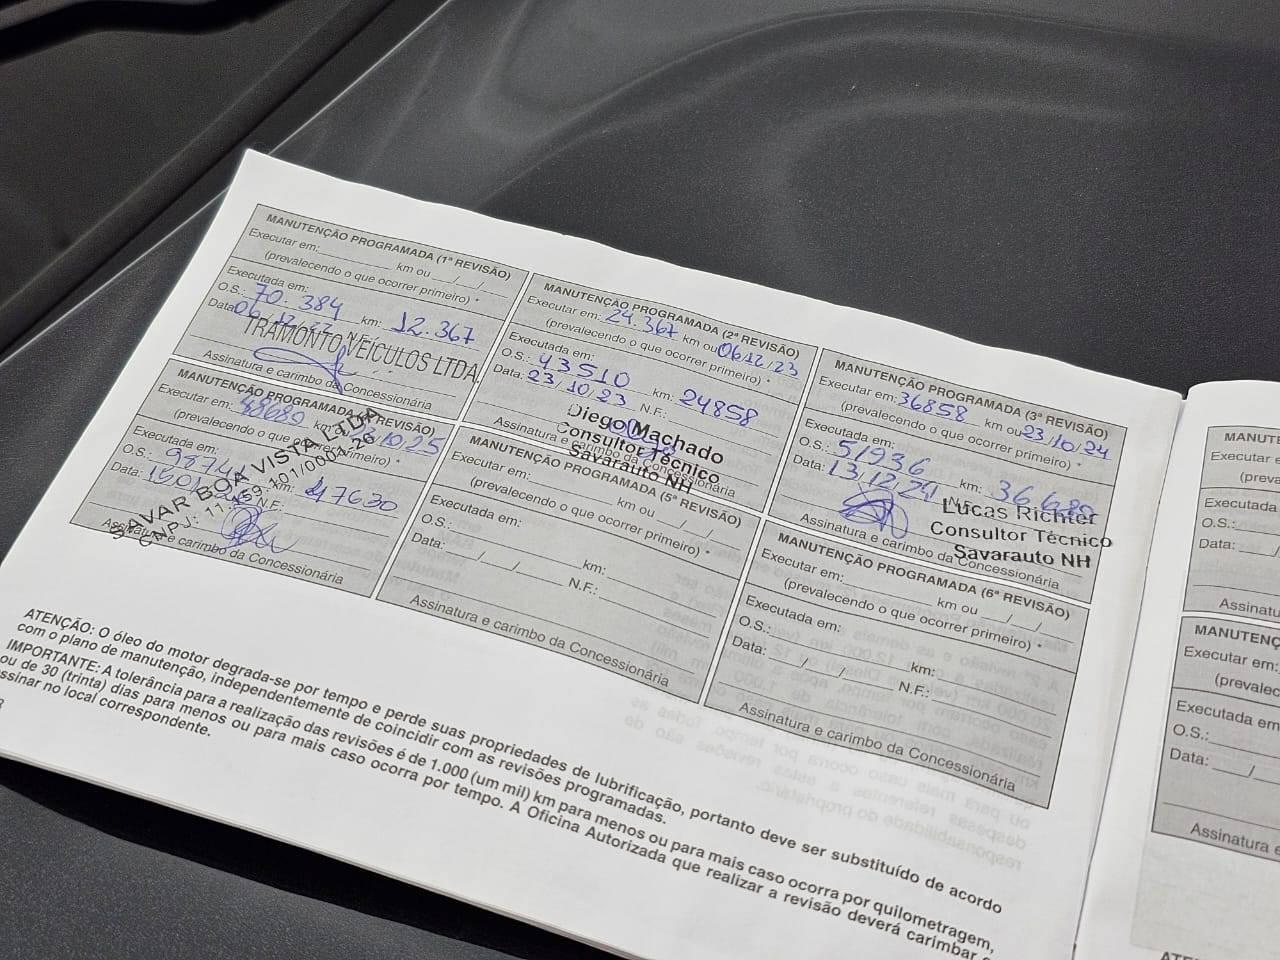 MANUTENÇÃO PROGRAMADA (1ª REVISÃO)
Executar em: km ou / /
(prevalecendo o que ocorrer primeiro) *
Executada em:
O.S.: 70.384 km: 12.367
Data: 06.12.22 N.F.
TRAMONTO VEÍCULOS LTDA.
Assinatura e carimbo da Concessionária
MANUTENÇÃO PROGRAMADA (2ª REVISÃO)
Executar em: 24.367 km ou 06/12/23
(prevalecendo o que ocorrer primeiro) *
Executada em:
O.S.: 43510 km: 24858
Data: 23/10/23 N.F.:
Diego Machado
Consultor Técnico
Savarauto NH
Assinatura e carimbo da Concessionária
MANUTENÇÃO PROGRAMADA (3ª REVISÃO)
Executar em: 36858 km ou 23/10/24
(prevalecendo o que ocorrer primeiro) *
Executada em:
O.S.: 51936 km: 36.680
Data: 13/12/24 N.F.
Lucas Richter
Consultor Técnico
Savarauto NH
Assinatura e carimbo da Concessionária
MANUTENÇÃO PROGRAMADA REVISÃO)
Executar em: 48680 km 10/25
(prevalecendo o que ocorrer primeiro) *
Executada em:
O.S.: km: 47630
Data: N.F.:
SAVAR BOA VISTA LTDA
CNPJ:
Assinatura e carimbo da Concessionária
MANUTENÇÃO PROGRAMADA (5ª REVISÃO)
Executar em: km ou / /
(prevalecendo o que ocorrer primeiro) *
Executada em:
O.S.: km:
Data: / / N.F.:
Assinatura e carimbo da Concessionária
MANUTENÇÃO PROGRAMADA (6ª REVISÃO)
Executar em: km ou / /
(prevalecendo o que ocorrer primeiro) *
Executada em:
O.S.: km:
Data: / / N.F.:
Assinatura e carimbo da Concessionária
ATENÇÃO: O óleo do motor degrada-se por tempo e perde suas propriedades de lubrificação, portanto deve ser substituído de acordo
com o plano de manutenção, independentemente de coincidir com as revisões programadas.
IMPORTANTE: A tolerância para a realização das revisões é de 1.000 (um mil) km para menos ou para mais caso ocorra por quilometragem,
ou de 30 (trinta) dias para menos ou para mais caso ocorra por tempo. A Oficina Autorizada que realizar a revisão deverá carimbar
assinar no local correspondente.
MANUT
Executar e
(preva
Executada
O.S.:
Data: /
Assinatu
MANUTENÇ
Executar em:
(prevalec
Executada em
O.S.:
Data: /
Assinatura e